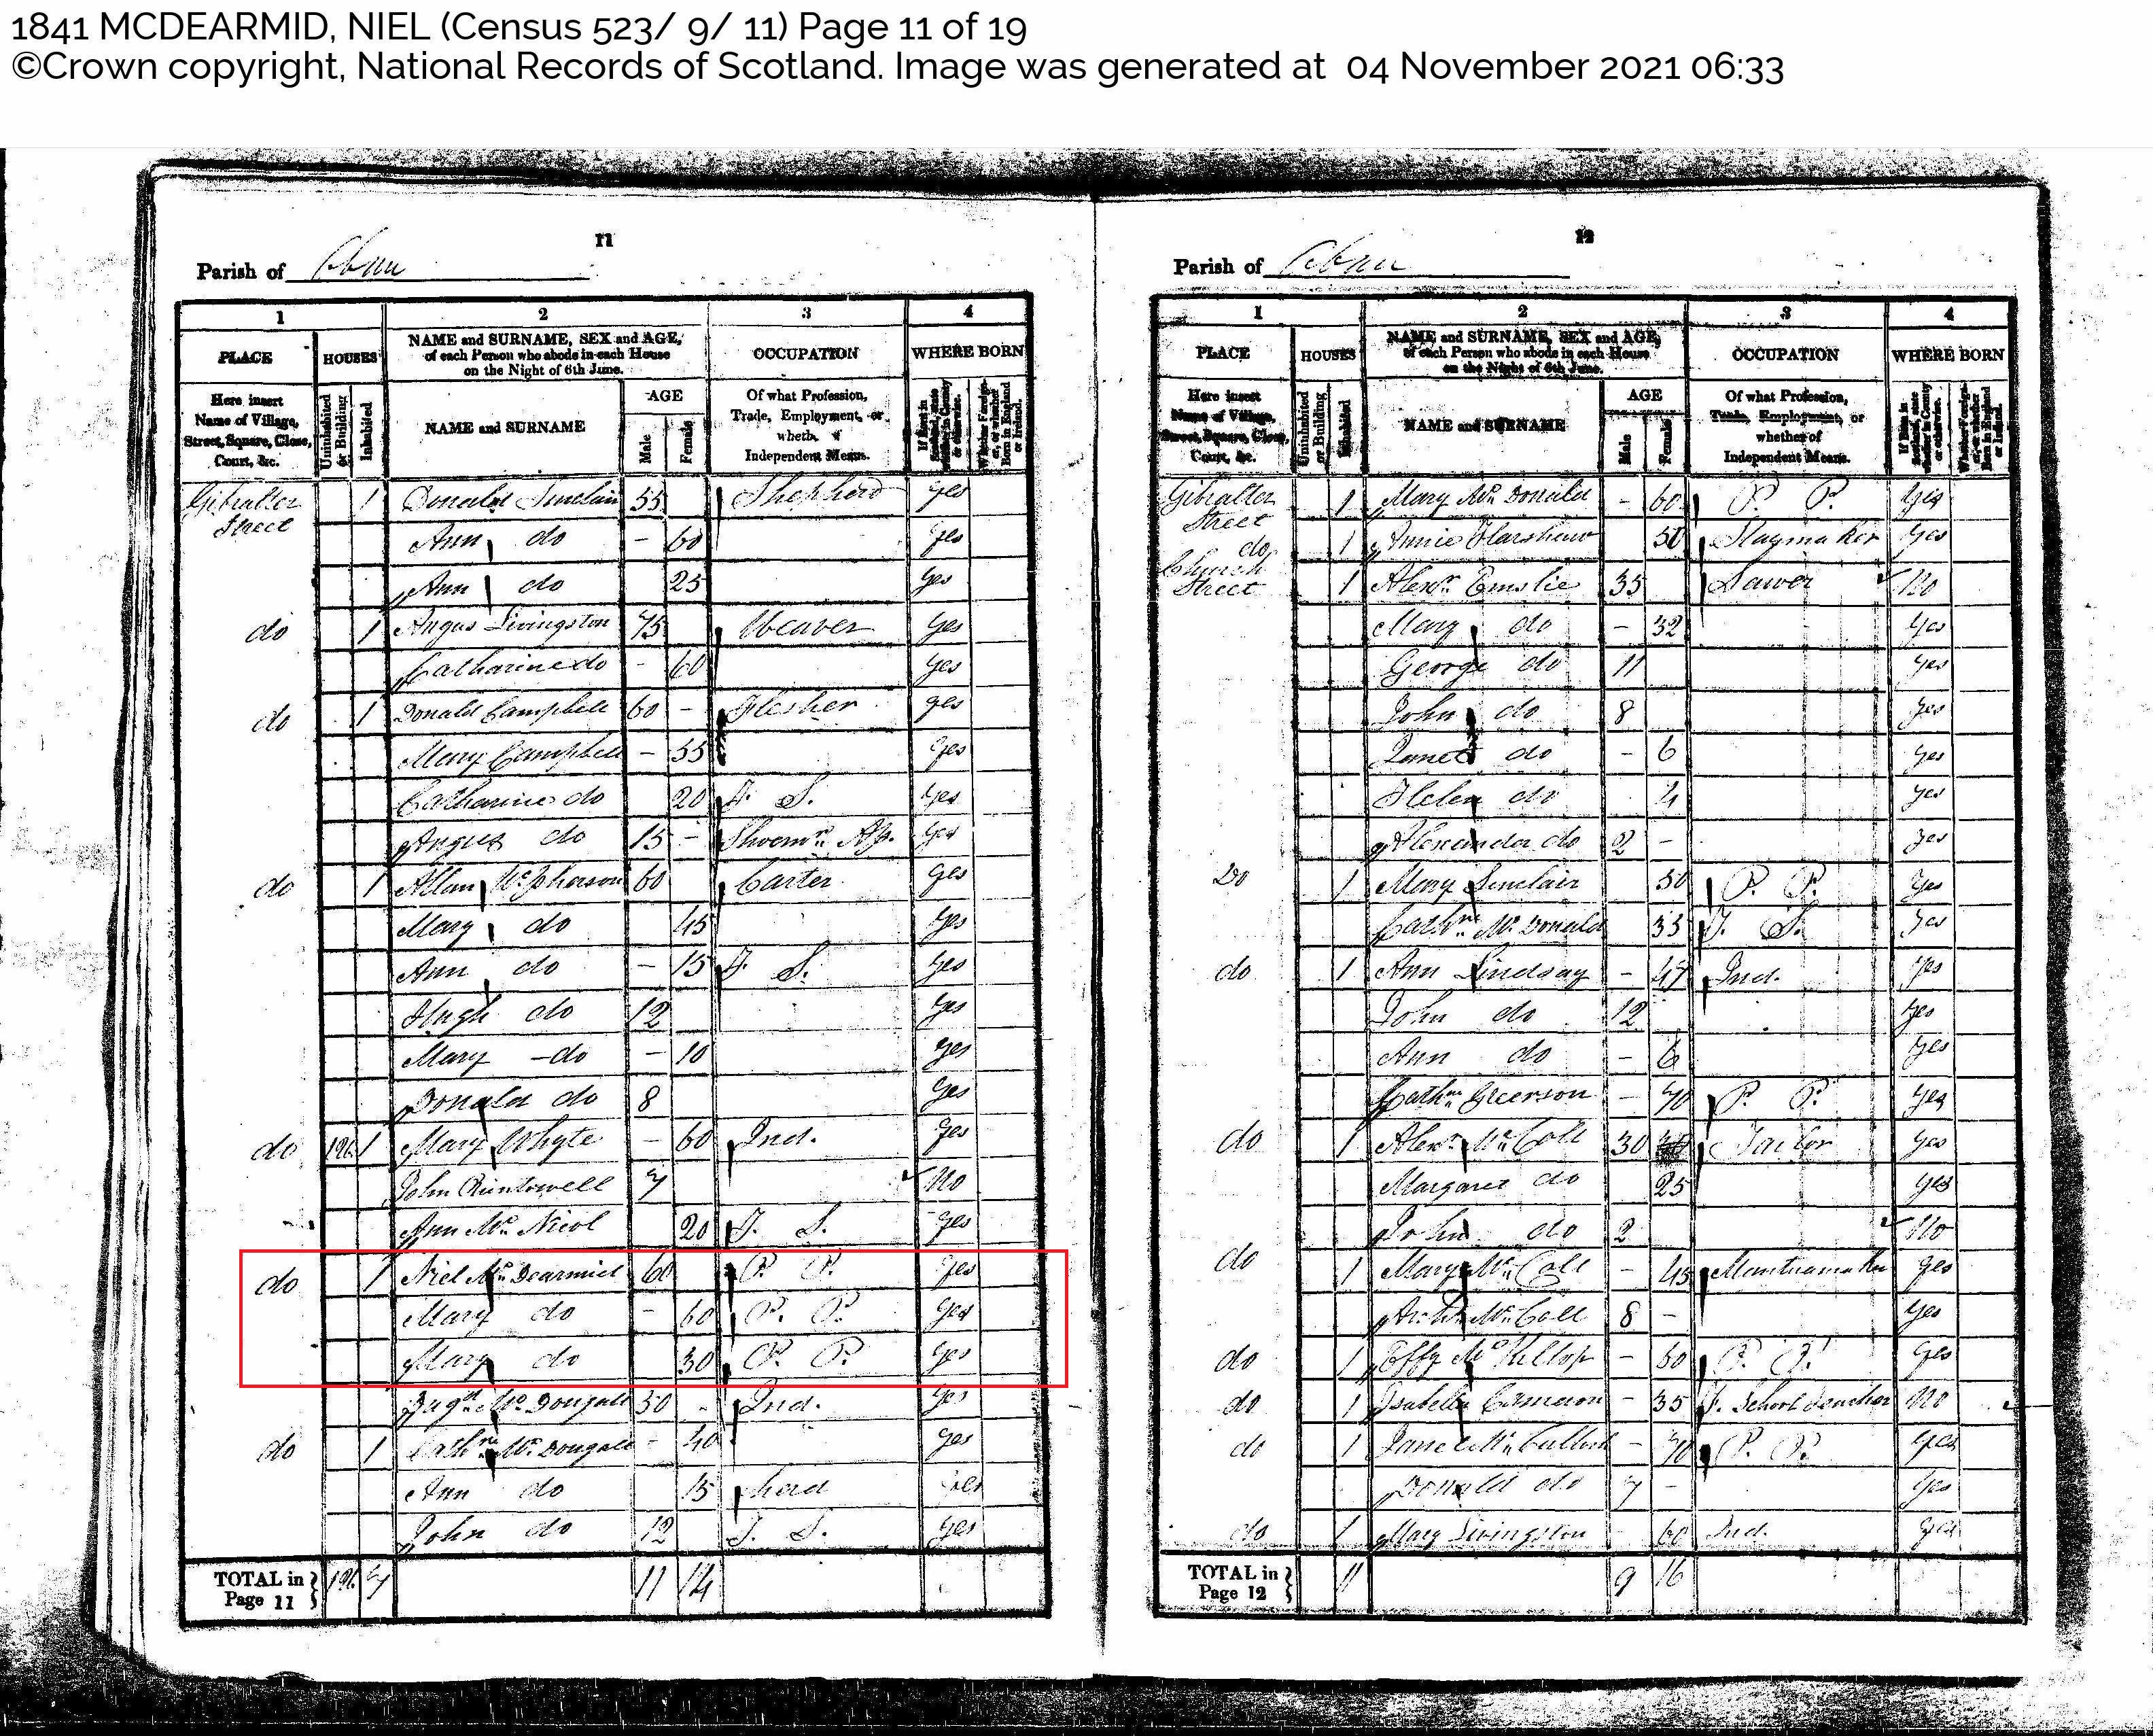 1841 MCDEARMID, NIEL (Census 523/ 9/ 11) Page 11 of 19
©Crown copyright, National Records of Scotland. Image was generated at 04 November 2021 06:33
11
Parish of Oban
1 2 3 4
PLACE HOUSES NAME and SURNAME, SEX and AGE, of each Person who abode in each House on the Night of 6th June. OCCUPATION WHERE BORN
Here insert Name of Village, Street, Square, Close, Court, &c. Uninhabited or Building Inhabited NAME and SURNAME AGE Male Female Of what Profession, Trade, Employment, or whether of Independent Means. If Born in Scotland, state whether in County or otherwise. Whether Foreigner, or whether Born in England or Ireland.
Gibralter Street 1 Donald Sinclair 55 Shepherd Yes
Ann do - 60 Yes
Ann do 25 Yes
do 1 Angus Livingston 75 Weaver Yes
Catharine do - 60 Yes
do 1 Donald Campbell 60 - Flesher Yes
Mary Campbell - 55 Yes
Catharine do 20 F. S. Yes
Angus do 15 - Shoemr. Ap. Yes
do 1 Allan McPherson 60 Carter Yes
Mary do 45 Yes
Ann do - 15 F. S. Yes
Hugh do 12 Yes
Mary - do - 10 Yes
Donald do 8 Yes
do 1 Mary Whyte - 60 Ind. Yes
John 7 No
Ann Mc Nicol 20 F. S. Yes
do 1 Niel Mc Dearmid 60 P. P. Yes
Mary do - 60 P. P. Yes
Mary do 30 P. P. Yes
Dugd. Mc Dougall 30 - Ind. Yes
do 1 Cathne. Mc Dougall - 40 Yes
Ann do 15 Yes
John do 12 F. S. Yes
TOTAL in Page 11 7 11 14
12
Parish of Oban
1 2 3 4
PLACE HOUSES NAME and SURNAME, SEX and AGE, of each Person who abode in each House on the Night of 6th June. OCCUPATION WHERE BORN
Here insert Name of Village, Street, Square, Close, Court, &c. Uninhabited or Building Inhabited NAME and SURNAME AGE Male Female Of what Profession, Trade, Employment, or whether of Independent Means. If Born in Scotland, state whether in County or otherwise. Whether Foreigner, or whether Born in England or Ireland.
Gibralter Street 1 Mary Mc Donald - 60 P. P. Yes
do 1 Annie 50 Staymaker Yes
Church Street 1 Alexr. Emslie 35 Sawer No
Mary do - 32 Yes
George do 11 Yes
John do 8 Yes
Janet do - 6 Yes
Helen do 4 Yes
Alexander do 2 - Yes
Do 1 Mary Sinclair 50 P. P. Yes
Cathne. Mc Donald 35 F. S. Yes
do 1 Ann Lindsay - 47 Ind. Yes
John do 12 Yes
Ann do - 6 Yes
Cathne. Greerson - 70 P. P. Yes
do 1 Alexr. Mc Coll 30 Tailor Yes
Margaret do 25 Yes
John do 2 No
do 1 Mary Mc Coll - 45 Mantuamaker Yes
Archd. Mc Coll 8 - Yes
do 1 Effy Mc Killop - 60 P. P. Yes
do 1 Isabella Cameron - 35 F. School Teacher No
do 1 Janet Mc Culloch - 70 P. P. Yes
Donald do 7 - Yes
do 1 Mary Livingston 60 Ind. Yes
TOTAL in Page 12 11 9 16